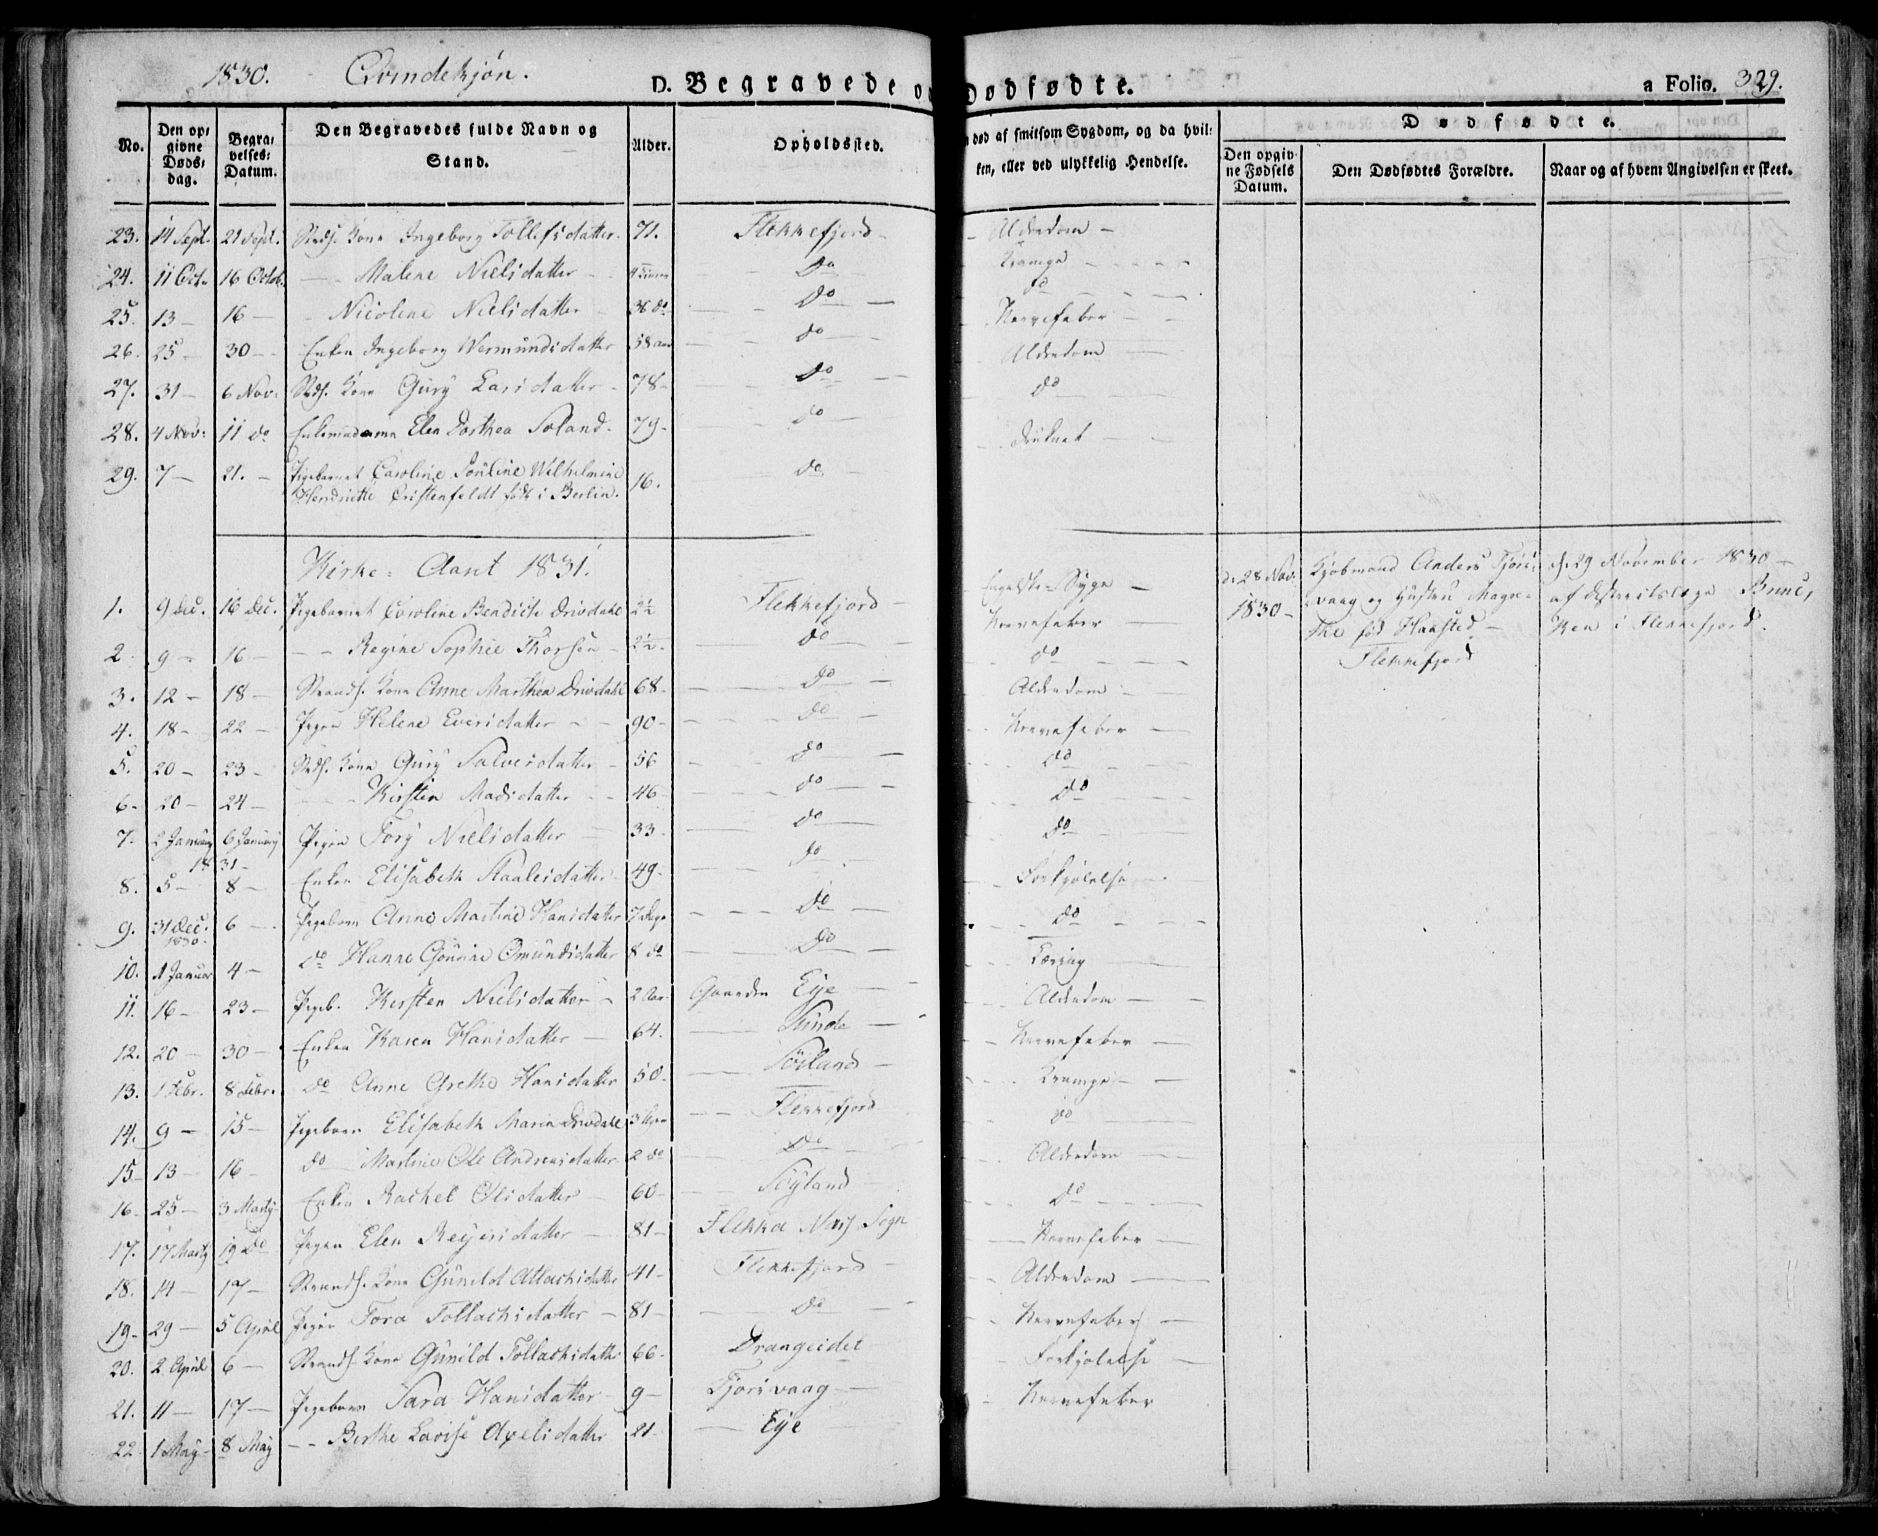 1830. Qvindekjøn.
D. Begravede o Dødfødte.
a Folio. 329.
No.
Den opgivne Døds-dag.
Begravelses-Datum.
Den Begravedes fulde Navn og Stand.
Alder.
Opholdssted.
død af smitsom Sygdom, og da hvil-
ken, eller ved ulykkelig Hendelse.
Dødfødte.
Den opgivne Fødsels Datum.
Den Dødfødtes Forældre.
Naar og af hvem Angivelsen er skeet.
23. 14 Sept. 21 Sept. Kone Ingeborg Tollefsdatter 71. Flekkefjord Alderdom
24. 11 Oct. 16 Octob. Malene Nielsdatter 4 Do Krampe
25. 13 16 Nicoline Nielsdatter 36 do Do do
26. 25 30 Enken Ingeborg Wermundsdatter 58 Aar do Nervefeber
27. 31 6 Nov. Kone Gury Larsdatter 78 Do Alderdom
28. 4 Nov. 11 do Elen Dorthea Soland 79 do do
29. 7 21. Pigebarnet Caroline Pouline Wilhelmine
Hendriette Cristenfeldt født i Berlin. 16. do druknet
Kirke-Aaret 1831.
1. 9 Dec. 16 Dec. Pigebarnet Caroline Bendicte Drivdahl 2½ Flekkefjord Engelske Syge
2. 9 16 Regine Sophie Thorsen 2½ do Nervefeber
3. 12 18 Kone Anne Marthea Drivdahl 68 do do
4. 18 22 Pigen Helene Eversdatter 90 do Alderdom
5. 20 23 Kone Gury Salvesdatter 56 do Nervefeber
6. 20 24 Kirsten Madsdatter 46 do do
7. 2 January 6 January Pigen Tory Nielsdatter 33 do Do
1831
8. 5 8 Enken Elisabeth Staalesdatter 49 do Do
9. 31 Dec. 1830. 6 Pigebarn Anne Martine Hansdatter 7 Dage do Forkjølelse
10. 1 Januar 4 Do Hanne Omundsdatter 8 do Do do
11. 16 23 Pigeb. Kirsten Nielsdatter 2 Aar Gaarden Eye Tæring
12. 20 30 Enken Karen Hansdatter 64. Sunde Alderdom
13. 1 Febr. 8 Febr. do Anne Grethe Hansdatter 50 Nervefeber
14. 9 15 Pigebarn Elisabeth Maria Drivdahl 3 Flekkefjord Krampe
15. 13 16 do Martine Ole Andreasdatter 2 do Do do
16. 25 3 Marty Enken Rachel Olsdatter 60 Alderdom
17. 17 Marty 19 Do Pigen Elen Reyersdatter 81 Sogn Do
18. 14 17 Kone Gunild Atlachsdatter 41 Flekkefjord Nervefeber
19. 29 5 April Pigen Tora Tollachsdatter 81 do Alderdom
20. 2 April 6 Kone Gunild Tollachsdatter 66 Drangeidet Nervefeber
21. 11 17 Pigebarn Sara Hansdatter 9 Fjorsvaag Forkjølelse
22. 1 May 8 May Berthe Lovise Axelsdatter 21 Eye Nervefeber
d. 28 Nov. 1830
Kjøbmand Anders Fjors-
vaag og Hustru Magre-
the fød Haasted
Flekkefjord
d. 29 November 1830
af Districtslæge
i Flekkefjord.